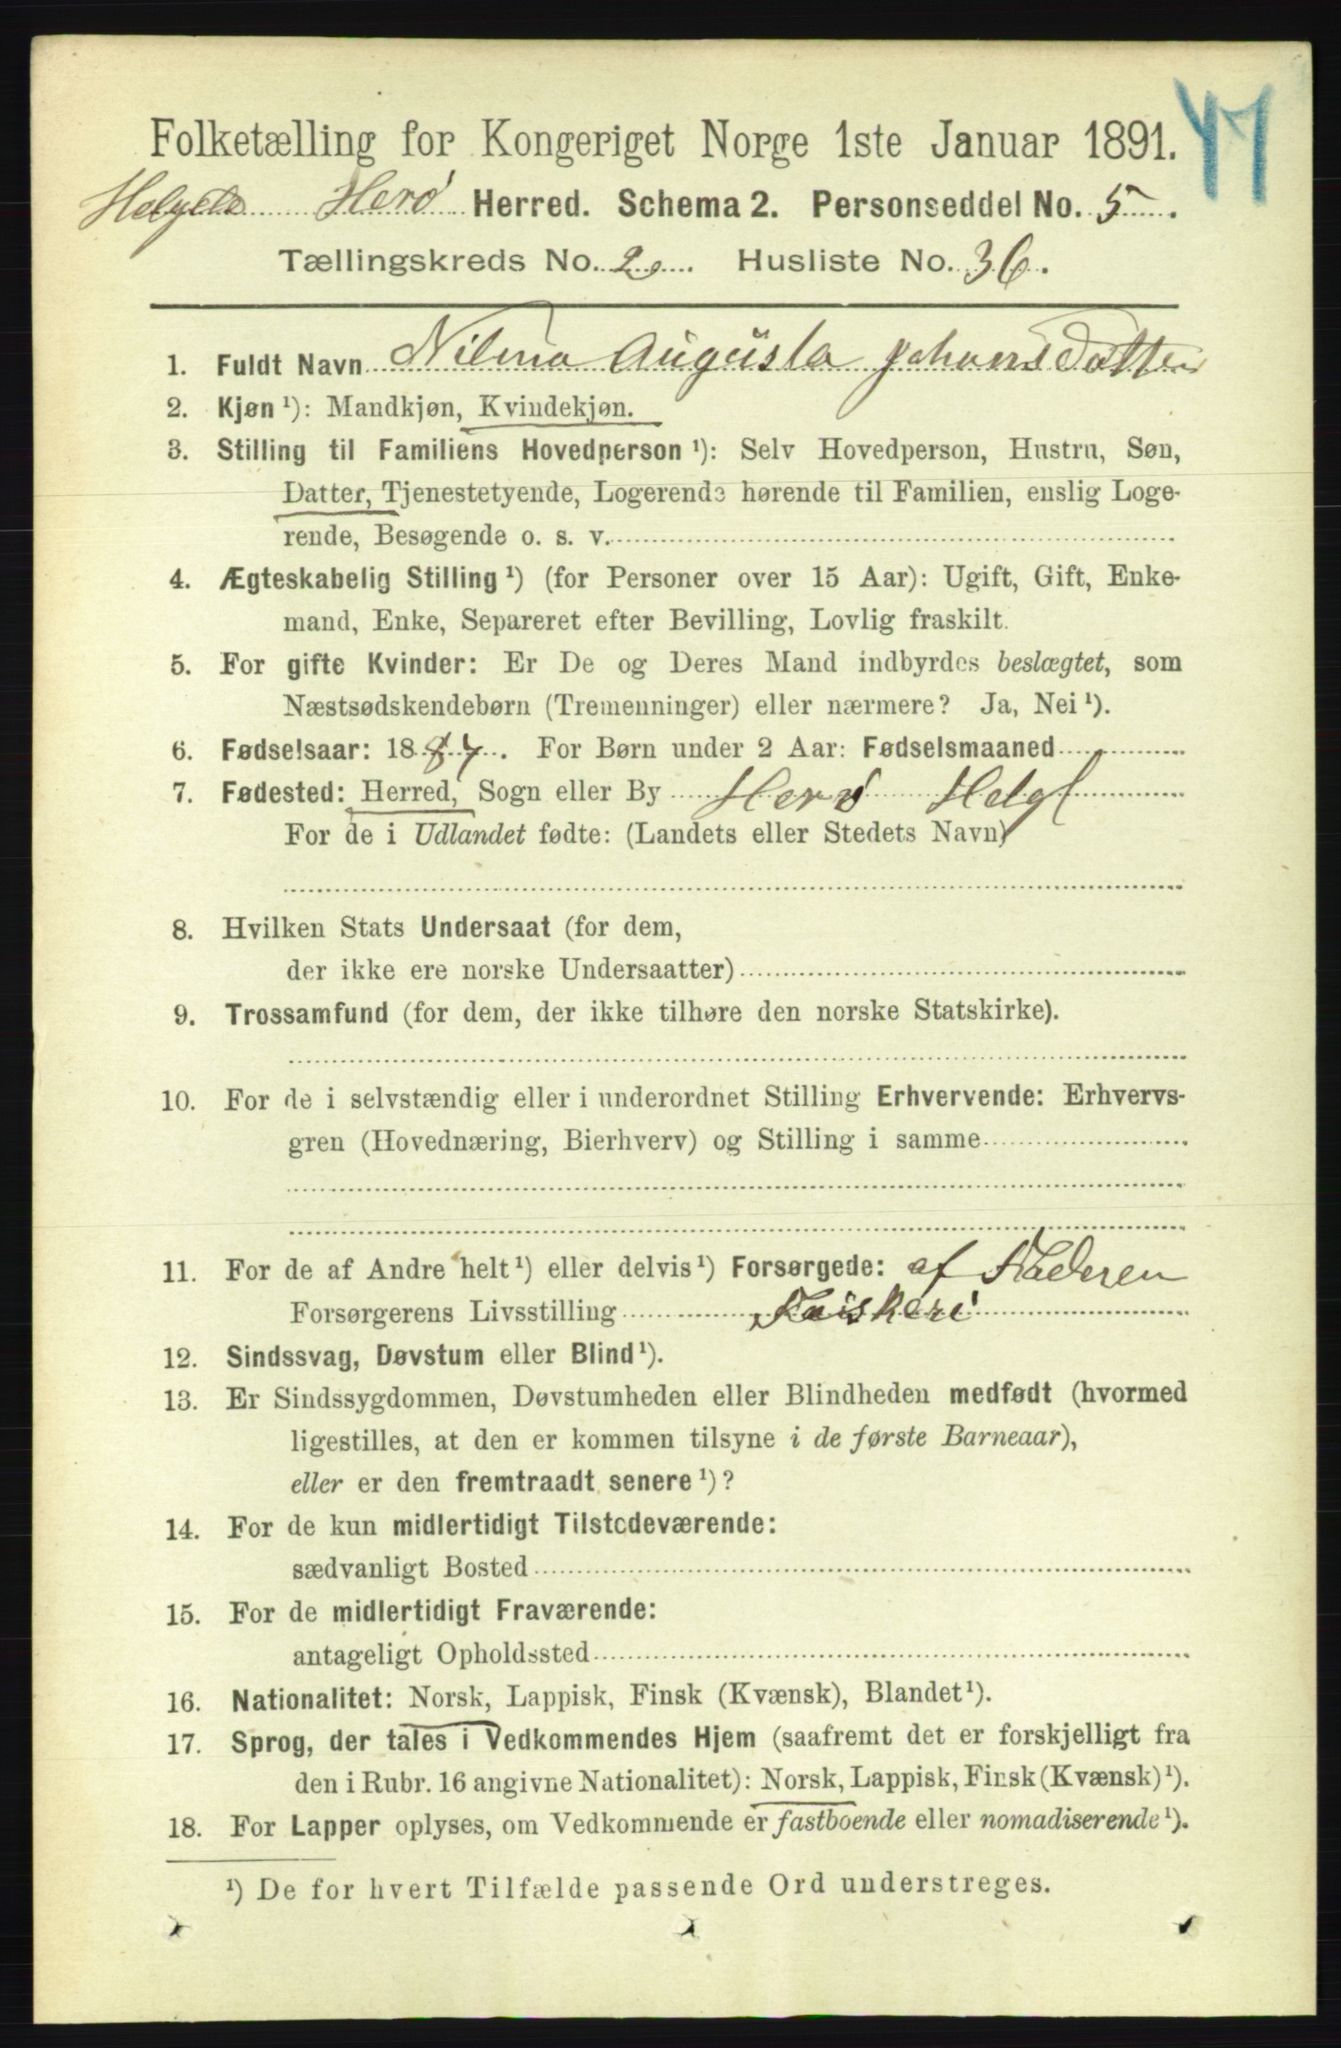 47
Folketælling for Kongeriget Norge 1ste Januar 1891.
Herø Herred. Schema 2. Personseddel No. 5.
Tællingskreds No. 2. Husliste No. 36.
1. Fuldt Navn Augusta Johansdatter
2. Kjøn ¹): Mandkjøn, Kvindekjøn.
3. Stilling til Familiens Hovedperson ¹): Selv Hovedperson, Hustru, Søn,
Datter, Tjenestetyende, Logerende hørende til Familien, enslig Loge-
rende, Besøgende o. s. v.
4. Ægteskabelig Stilling ¹) (for Personer over 15 Aar): Ugift, Gift, Enke-
mand, Enke, Separeret efter Bevilling, Lovlig fraskilt.
5. For gifte Kvinder: Er De og Deres Mand indbyrdes beslægtet, som
Næstsødskendebørn (Tremenninger) eller nærmere? Ja, Nei ¹).
6. Fødselsaar: 1887. For Børn under 2 Aar: Fødselsmaaned
7. Fødested: Herred, Sogn eller By Herø Helgl
For de i Udlandet fødte: (Landets eller Stedets Navn)
8. Hvilken Stats Undersaat (for dem,
der ikke ere norske Undersaatter)
9. Trossamfund (for dem, der ikke tilhøre den norske Statskirke).
10. For de i selvstændig eller i underordnet Stilling Erhvervende: Erhvervs-
gren (Hovednæring, Bierhverv) og Stilling i samme
11. For de af Andre helt ¹) eller delvis ¹) Forsørgede: af Faderen
Forsørgerens Livsstilling Fiskeri
12. Sindssvag, Døvstum eller Blind ¹).
13. Er Sindssygdommen, Døvstumheden eller Blindheden medfødt (hvormed
ligestilles, at den er kommen tilsyne i de første Barneaar),
eller er den fremtraadt senere ¹)?
14. For de kun midlertidigt Tilstedeværende:
sædvanligt Bosted
15. For de midlertidigt Fraværende:
antageligt Opholdssted
16. Nationalitet: Norsk, Lappisk, Finsk (Kvænsk), Blandet ¹).
17. Sprog, der tales i Vedkommendes Hjem (saafremt det er forskjelligt fra
den i Rubr. 16 angivne Nationalitet): Norsk, Lappisk, Finsk (Kvænsk) ¹).
18. For Lapper oplyses, om Vedkommende er fastboende eller nomadiserende ¹).
¹) De for hvert Tilfælde passende Ord understreges.